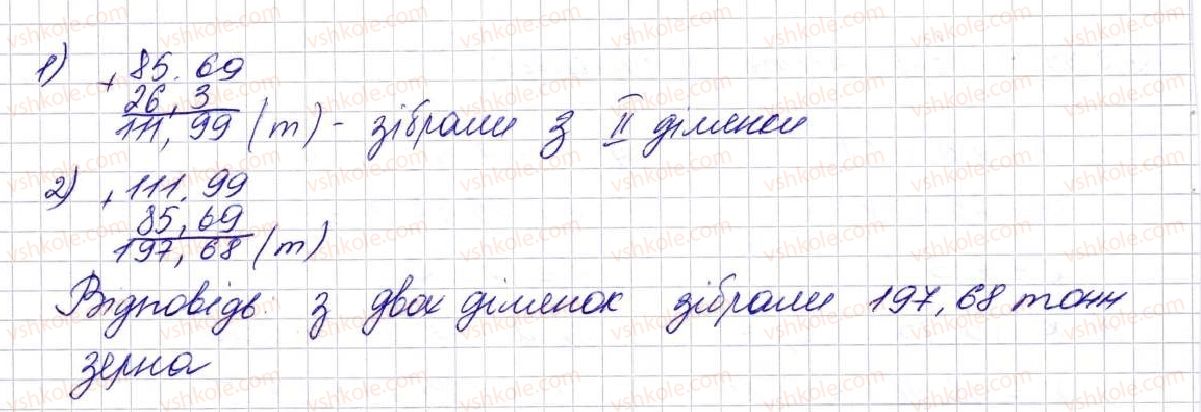 1) + 85.69
26,3
111,99 (т) - зібрали з II ділянки
2) + 111.99
85,69
197,68 (т)
Відповідь: з двох ділянок зібрали 197,68 тонн
зерна